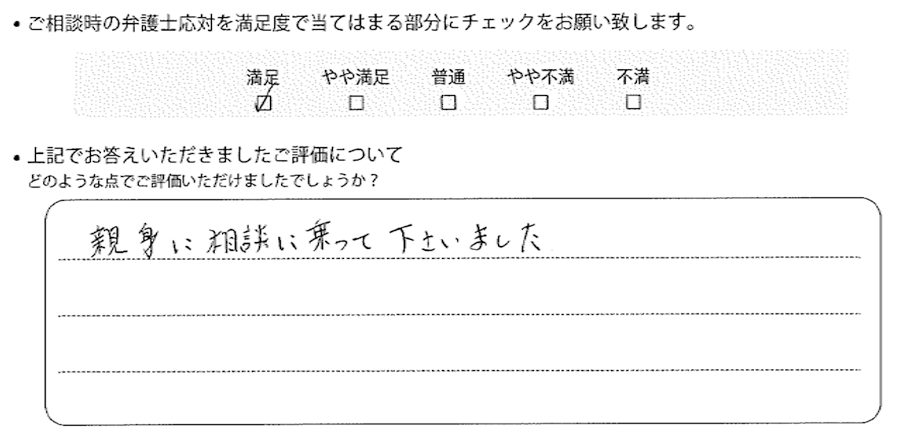 • ご相談時の弁護士応対を満足度で当てはまる部分にチェックをお願い致します。
満足 やや満足 普通 やや不満 不満
☑ ☐ ☐ ☐ ☐
• 上記でお答えいただきましたご評価について
どのような点でご評価いただけましたでしょうか？
親身に相談に乗って下さいました